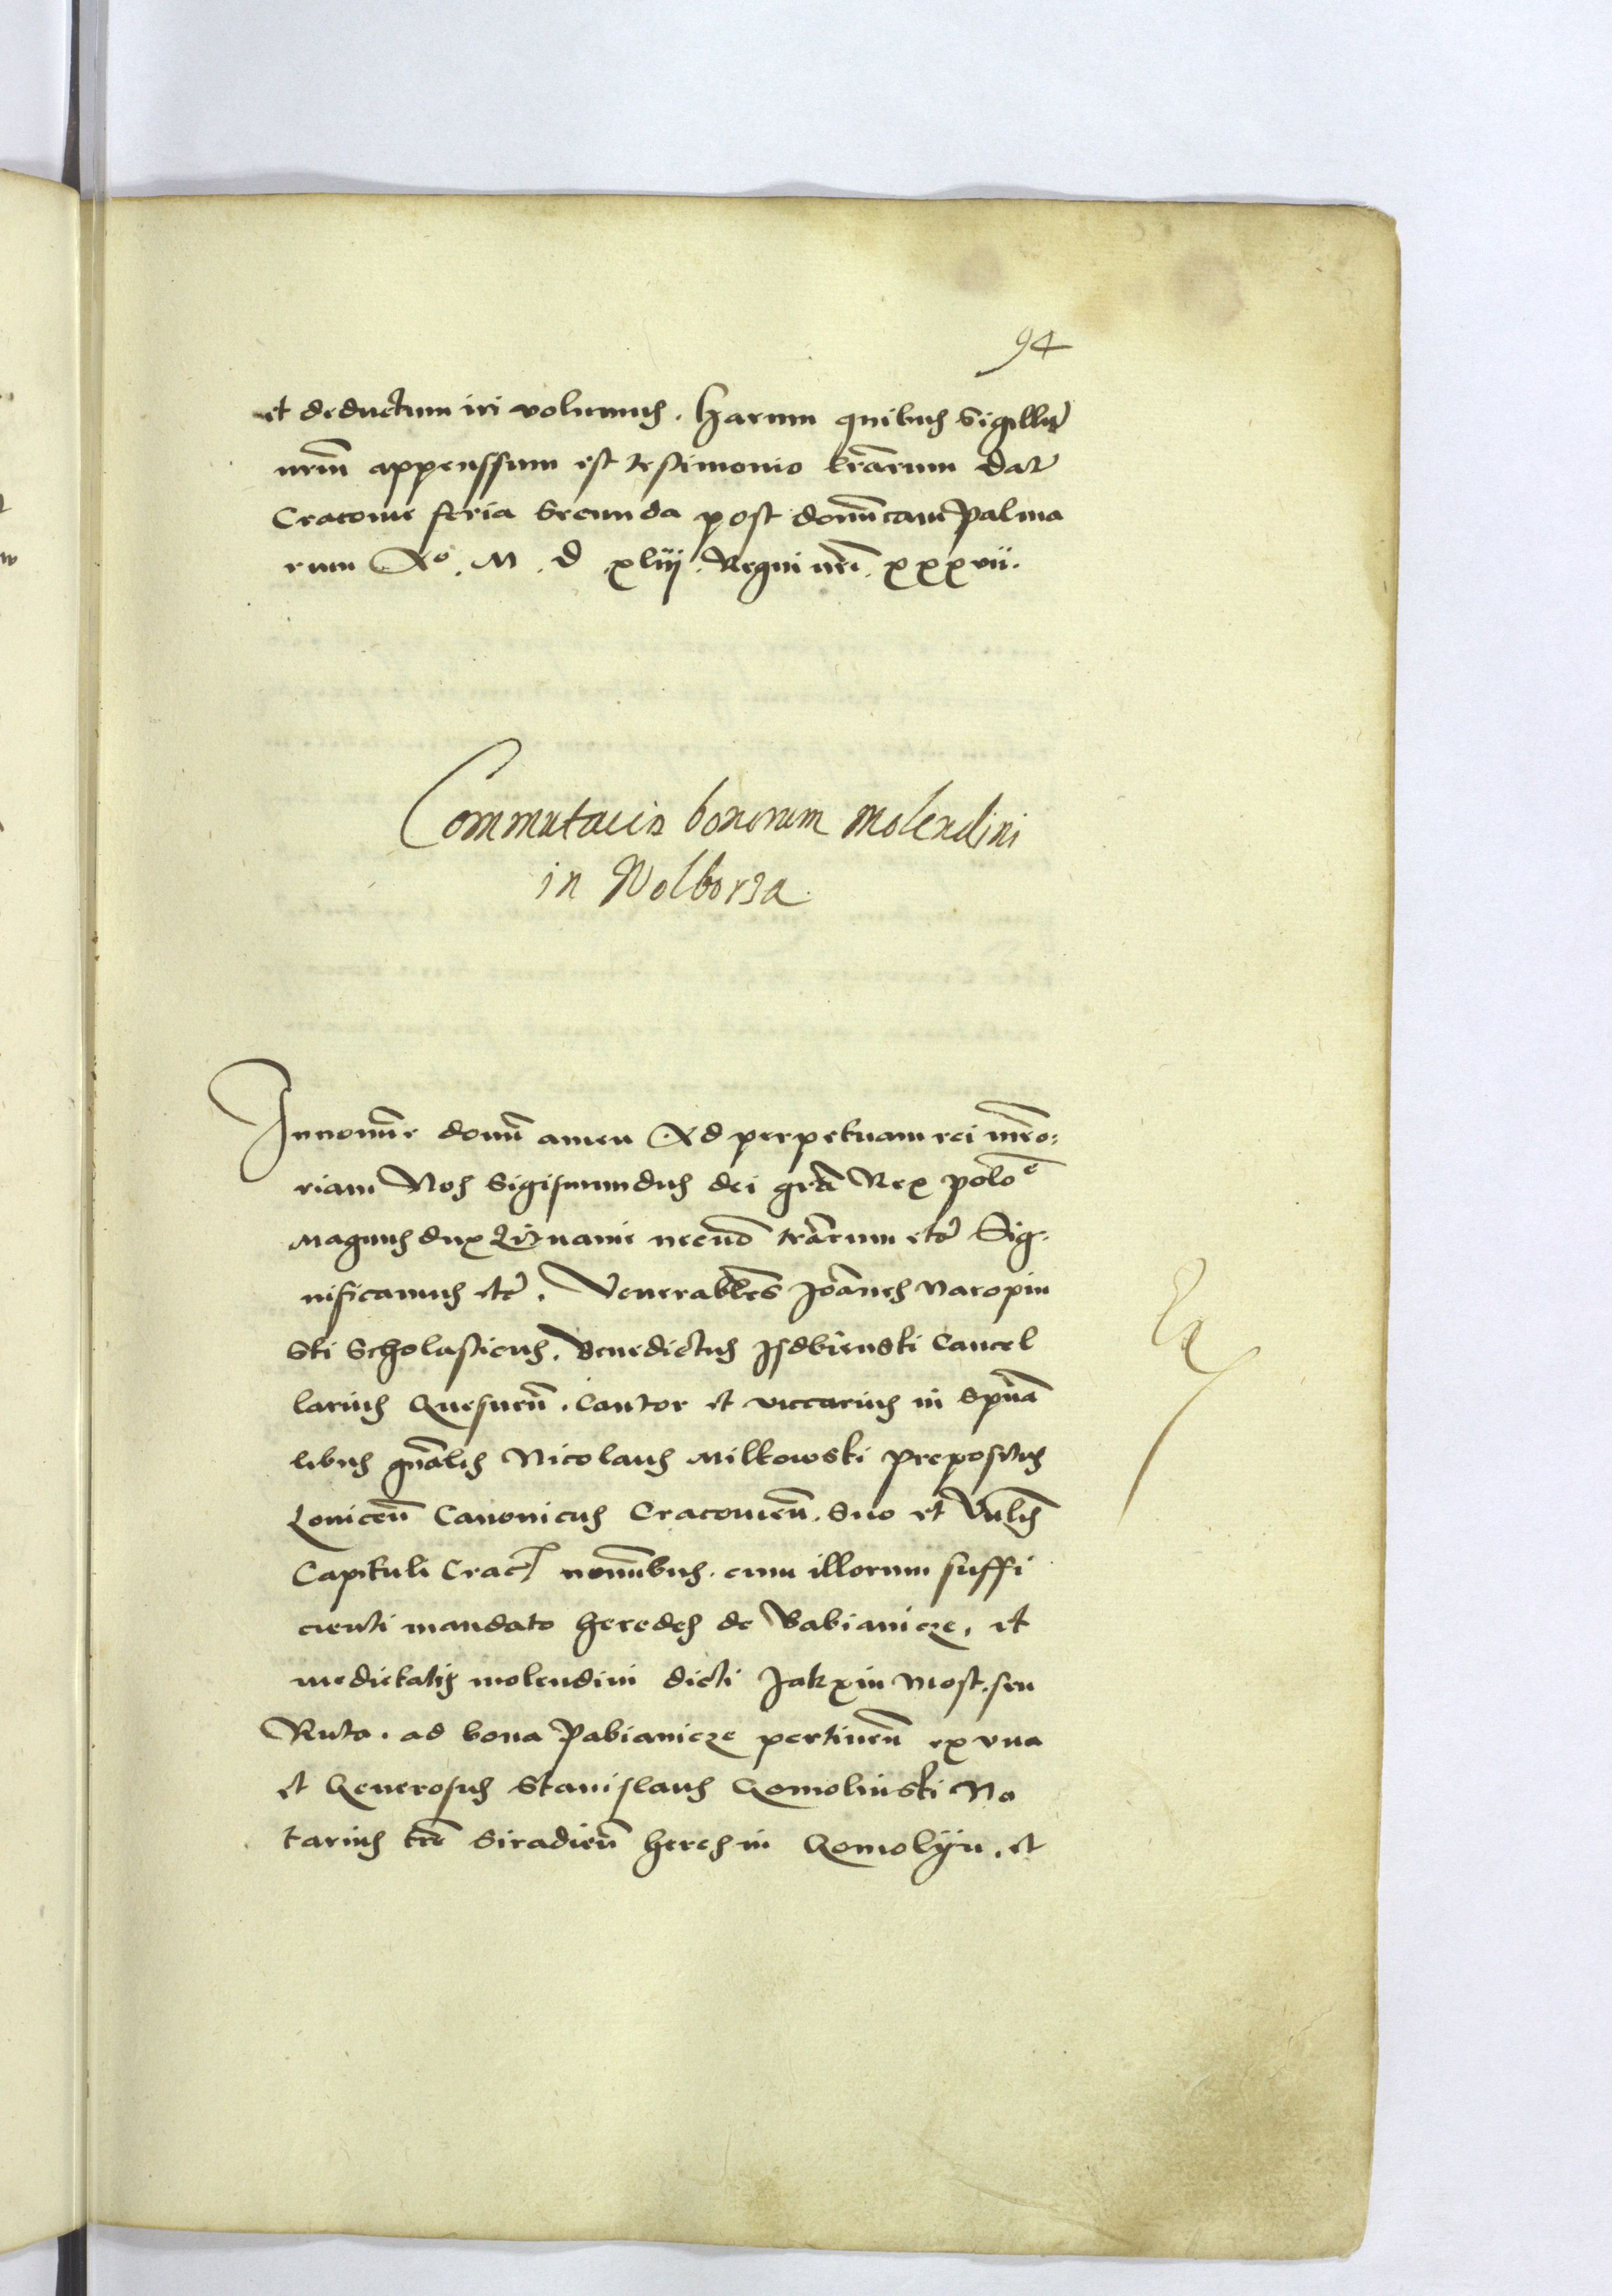 94
et deductum iri volumus. harum quibus Sigillu
nrm̄ appenssum est testimonio lrārum Dat
Cracovie feria Secunda post domīcam Palma
rum Aº. M. d xliij. Regni nrī. xxxvii.
Commutacio bonorum molendini
in Wolborza
In nomīe domī amen Ad perpetuam rei mēo:
riam Nos Sigismundus dei grā Rex poloe
Magnus dux Litvanie necnō trārum etc Sig:
nificamus etc. Venerabiles Joānes Naropin
ski Scholasticus. Benedictus Jsdbienski Cancel
larius Gnesnen̄. Cantor et viccarius in Spūa
libus gnālis Nicolaus Milkowski prepositus
Lonicen̄ Canonicus Cracovien̄. Suo et Vnlis
Capituli Crac nomībus. cum illorum suffi
cienti mandato heredes de Babianicze, et
medietatis molendini dicti Jakxin Most. seu
Ruta. ad bona Pabianicze pertinen̄ ex vna
et Generosus Stanislaus Gomolinski No
tarius trē Siradien̄ heres in Gomolÿn. et